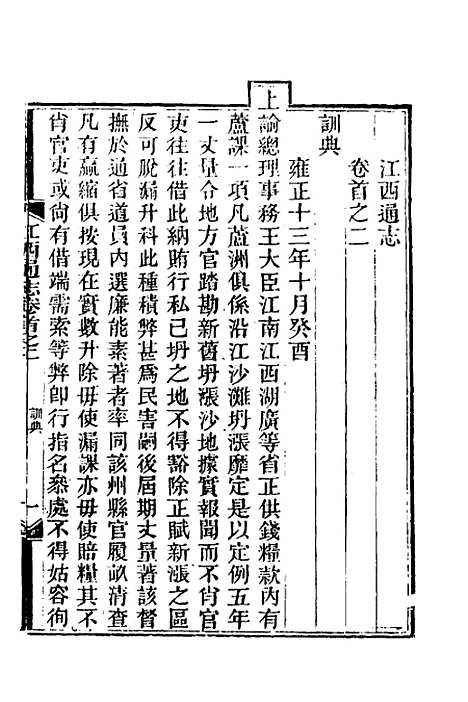 江西通志
卷首之二
訓典
雍正十三年十月癸酉
上諭總理事務王大臣江南江西湖廣等省正供錢糧款內有
蘆課一項凡蘆洲俱係沿江沙灘坍漲靡定是以定例五年
一丈量合地方官踏勘新舊坍漲沙地據實報聞而不肖官
吏往往借此納賄行私已坍之地不得豁除正賦新漲之區
反可脫漏升科此種積弊甚為民害嗣後屆期丈量著該督
撫於通省道員內選廉能素著者率同該州縣官履畝清查
凡有贏縮俱按現在實數升除毋使漏課亦毋使賠糧其不
肖官吏或尚有借端需索等弊卽行指名叅處不得姑容徇
江西通志卷首之二
訓典
一